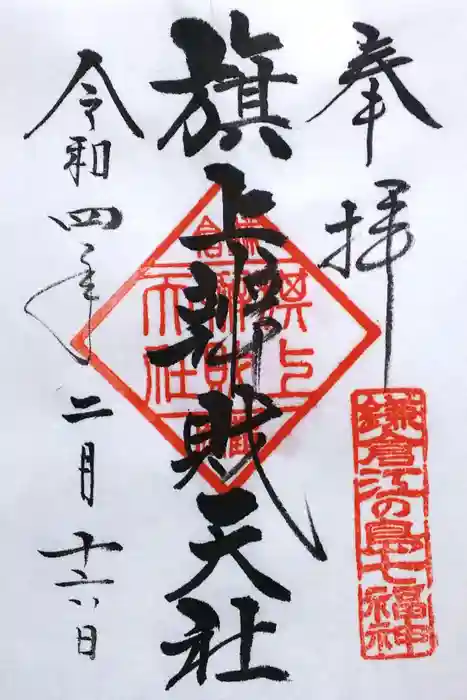 奉拝
鎌倉江の島七福神
旗上辨財天社
鎌倉
旗上
辨財
天社
令和四年二月十六日